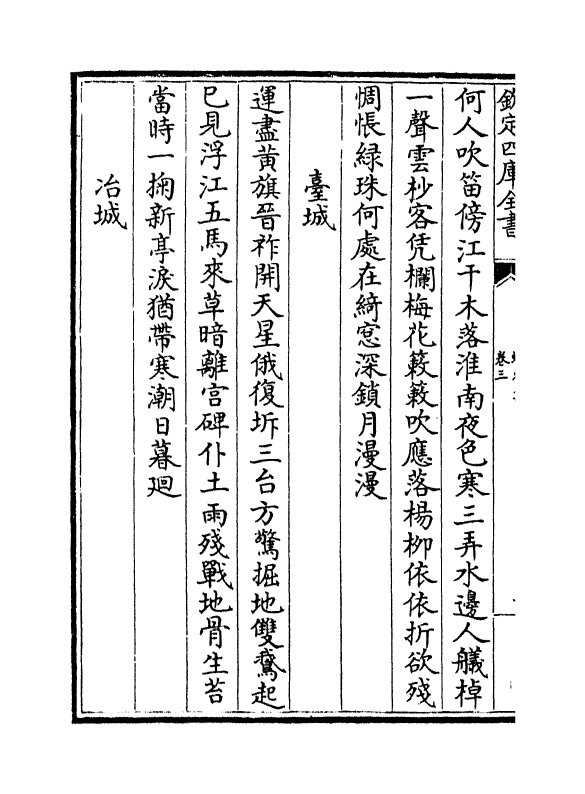 欽定四庫全書
卷三
何人吹笛傍江干木落淮南夜色寒三弄水邊人艤棹
一聲雲杪客凭欄梅花簌簌吹應落楊柳依依折欲殘
惆悵緑珠何處在綺窓深鎖月漫漫
臺城
運盡黄旗晉祚開天星俄復坼三台方驚掘地雙鵞起
已見浮江五馬來草暗離宫碑仆土雨殘戰地骨生苔
當時一掬新亭淚猶帶寒潮日暮廻
冶城